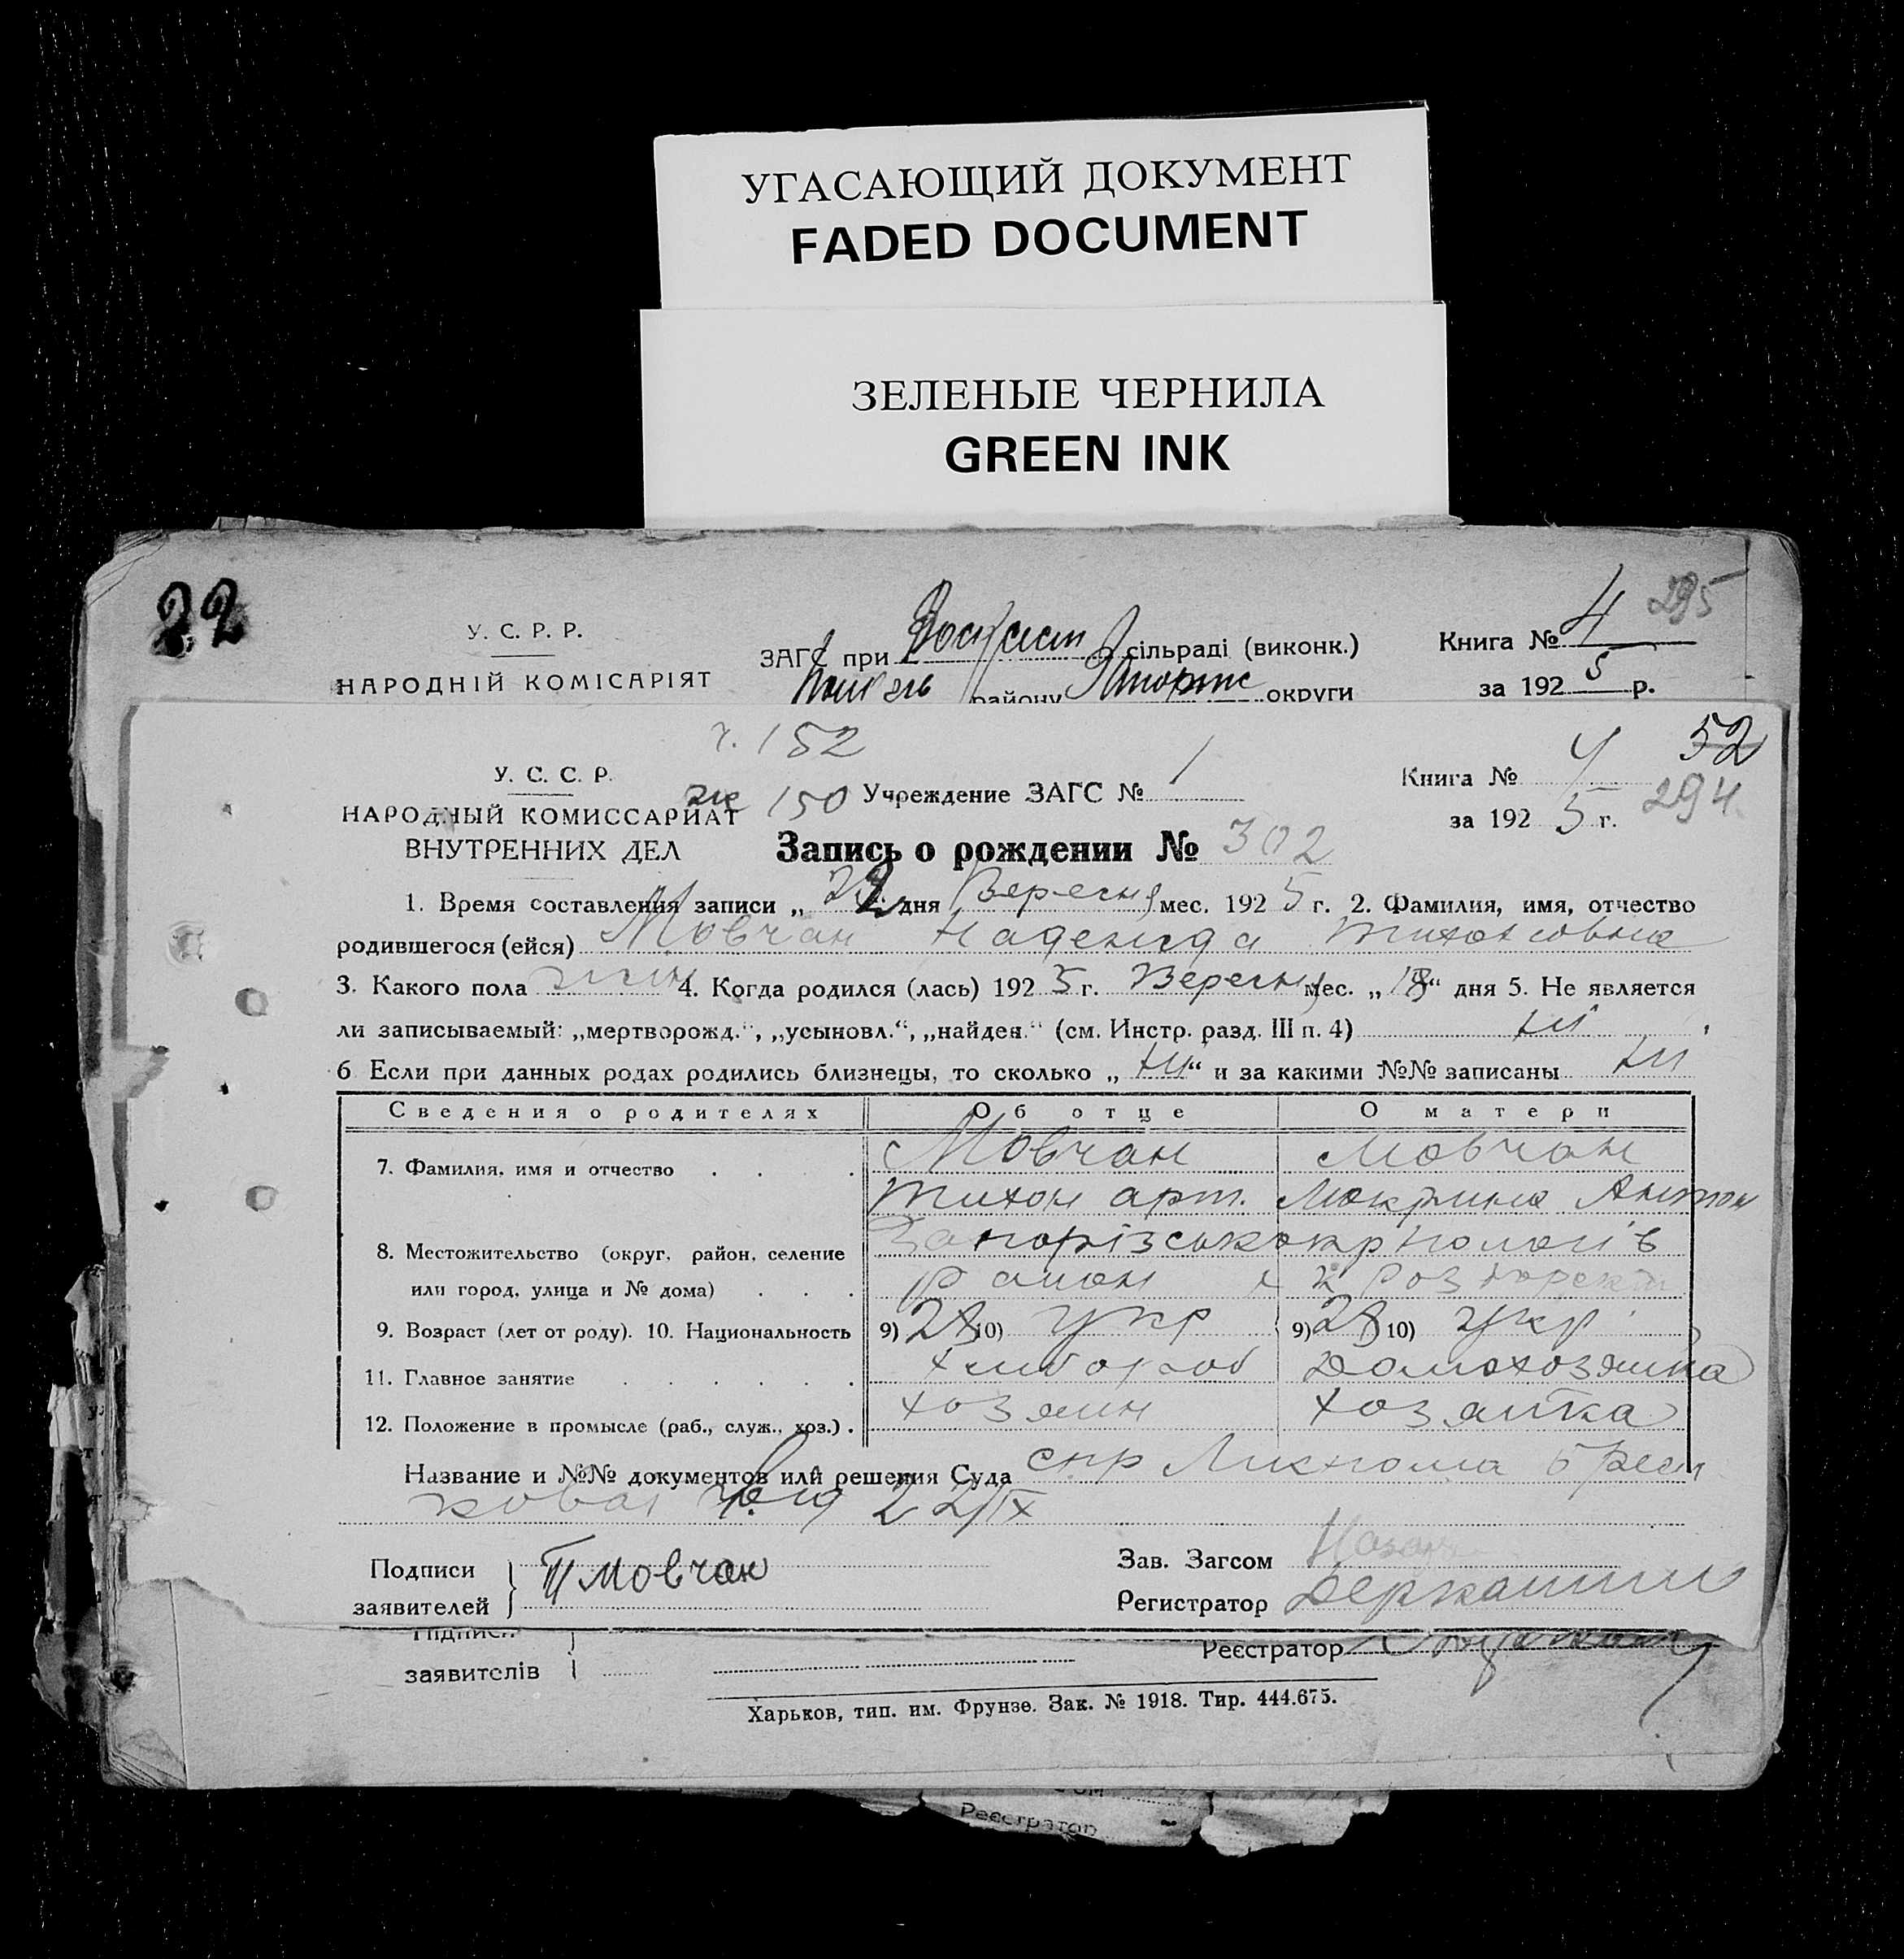 УГАСАЮЩИЙ ДОКУМЕНТ
FADED DOCUMENT
ЗЕЛЕНЫЕ ЧЕРНИЛА
GREEN INK
22
295
У. С. Р. Р.
ЗАГС при сільраді (виконк.)
Книга № 4
НАРОДНІЙ КОМІСАРІЯТ
району округи
за 192 5 р.
ч. 152
52
У. С. С. Р.
Книга № 4
ж 150 Учреждение ЗАГС № 1
294
НАРОДНЫЙ КОМИССАРИАТ
за 192 5 г.
ВНУТРЕННИХ ДЕЛ
Запись о рождении № 302
1. Время составления записи „ 22 дня Вересня мес. 192 5 г. 2. Фамилия, имя, отчество
родившегося (ейся) Мовчан Надежда Тихоновна
3. Какого пола жін 4. Когда родился (лась) 192 5 г. Вересня мес. „ “ дня 5. Не является
ли записываемый: „мертворожд.“, „усыновл.“, „найден.“ (см. Инстр. разд. III п. 4) ні
6 Если при данных родах родились близнецы, то сколько „ ні “ и за какими №№ записаны ні
Сведения о родителях Об отце О матери
7. Фамилия, имя и отчество Мовчан Мовчан
Тихон арт. Мокрина Антон
8. Местожительство (округ, район, селение Запорізька окр
или город, улица и № дома) район
9. Возраст (лет от роду). 10. Национальность 9) 28 10) укр 9) 28 10) укр
11. Главное занятие хлибороб Домохозяика
12. Положение в промысле (раб., служ., хоз.) хозяин хозяйка
Название и №№ документов или решения Суда спр
22/IX
Подписи
заявителей
Т Мовчан
Зав. Загсом
Регистратор
Підписи
заявителів
Реєстратор
Харьков, тип. им. Фрунзе. Зак. № 1918. Тир. 444.675.
Реєстратор